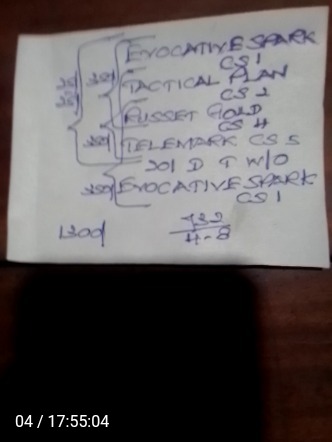 EVOCATIVE SPARK
CS 1
TACTICAL PLAN
CS 2
RUSSET GOLD
CS 4
TELEMARK CS 5
201 D T W/O
EVOCATIVE SPARK
CS 1
1300/
732
4-8
04 / 17:55:04